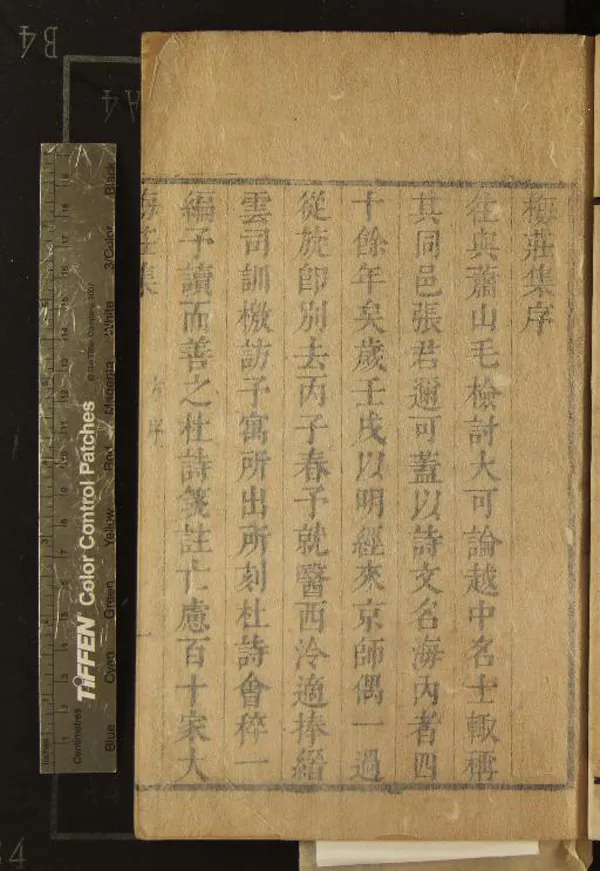 梅莊集序
往與蕭山毛檢討大可論越中名士輙稱
其同邑張君邇可蓋以詩文名海内者四
十餘年矣歲壬戌以明經來京師偶一過
從旋卽別去丙子春予就醫西泠適捧縉
雲司訓檄訪予寓所出所刻杜詩會稡一
編予讀而善之杜詩箋註亡慮百十家大
梅莊集
序
一
B4
A4
Inches
Centimetres
TIFFEN Color Control Patches
© The Tiffen Company, 2007
Blue
Cyan
Green
Yellow
Red
Magenta
White
3/Color
Black